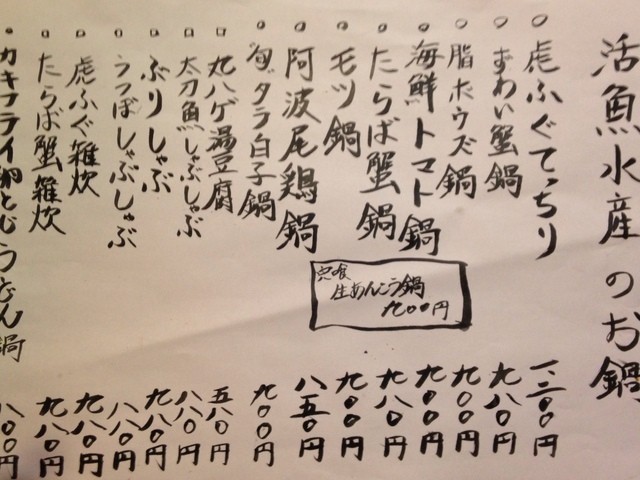 活魚水産のお鍋
○虎ふぐてっちり 一二〇〇円
○ずわい蟹鍋 九八〇円
○脂ボウズ鍋 九〇〇円
○海鮮トマト鍋 九〇〇円
○たらば蟹鍋 九八〇円
○モツ鍋 九〇〇円
宍喰
生あんこう鍋
九〇〇円
○阿波尾鶏鍋 八五〇円
○旬ダラ白子鍋 九〇〇円
○丸ハゲ湯豆腐 五八〇円
○太刀魚しゃぶしゃぶ 八八〇円
○ぶりしゃぶ 九八〇円
○うつぼしゃぶしゃぶ 八八〇円
○虎ふぐ雑炊 九八〇円
○たらば蟹雑炊 九八〇円
○カキフライ卵とじうどん鍋 八〇〇円